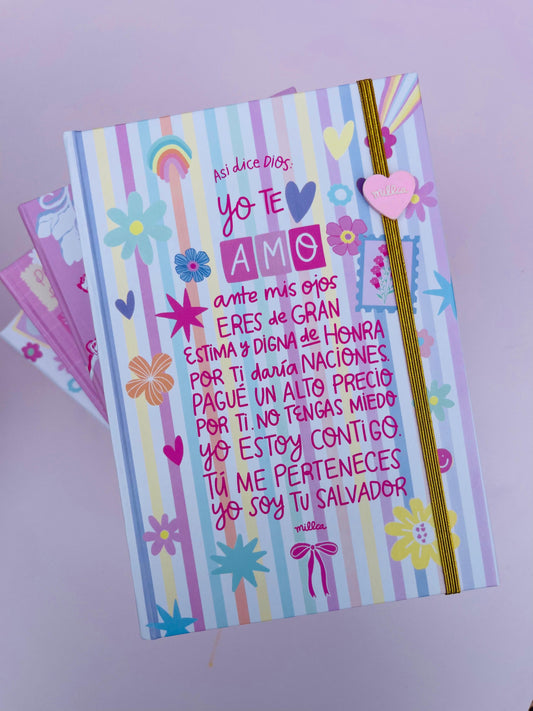 Así dice DIOS:
yo TE
AMO
ante mis ojos
ERES de GRAN
ESTIMA y DIGNA de HONRA
POR TI daría NACIONES.
PAGUÉ UN ALTO PRECIO
POR TI. NO TENGAS MIEDO
yo ESTOY CONTIGO.
TÚ ME PERTENECES
yo SOY TU SALVADOR
millca
millca